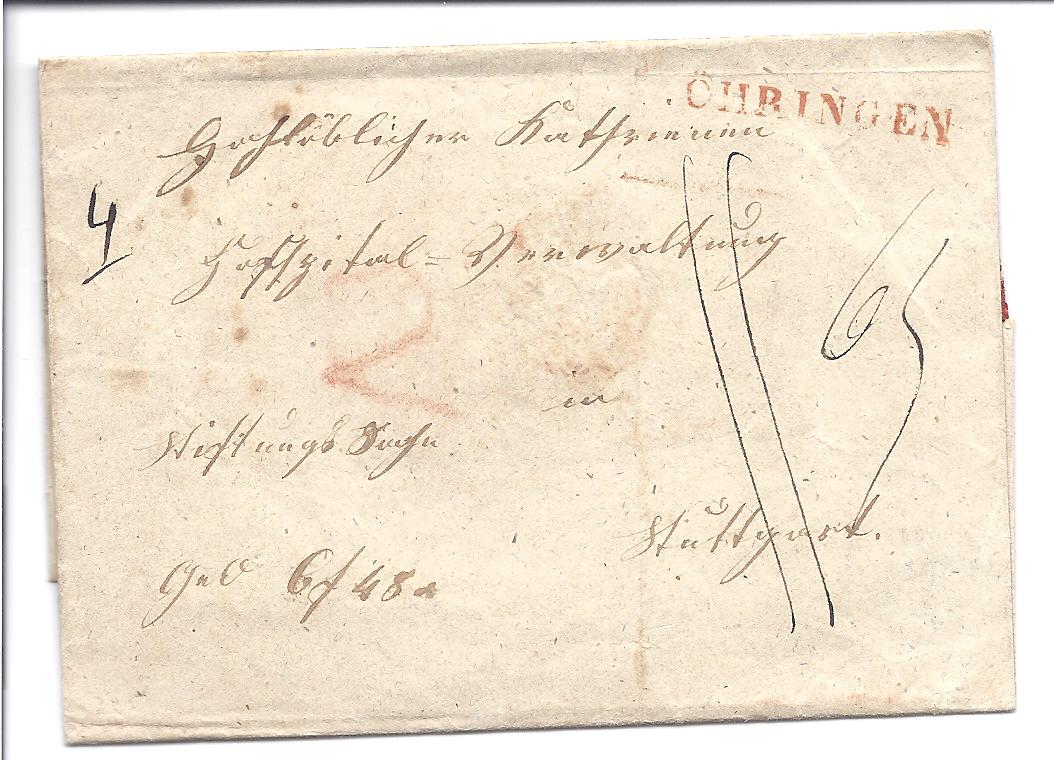 ÖHRINGEN
Hochlöblicher Katharinen
4
Hofspital=Verwaltung
65
2
in
Stiftungs Sache
Stuttgart.
Geld 6f 48 x